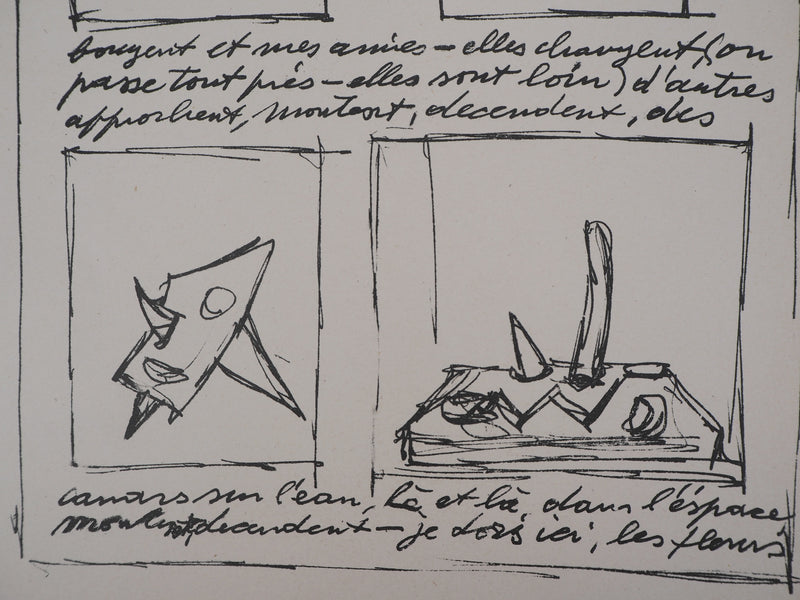 bougent et mes amies – elles changent, (on
passe tout près – elles sont loin) d'autres
approchent, montent, decendent, des
canars sur l'eau, là et là, dans l'éspace
montent, decendent – je dors ici, les fleurs